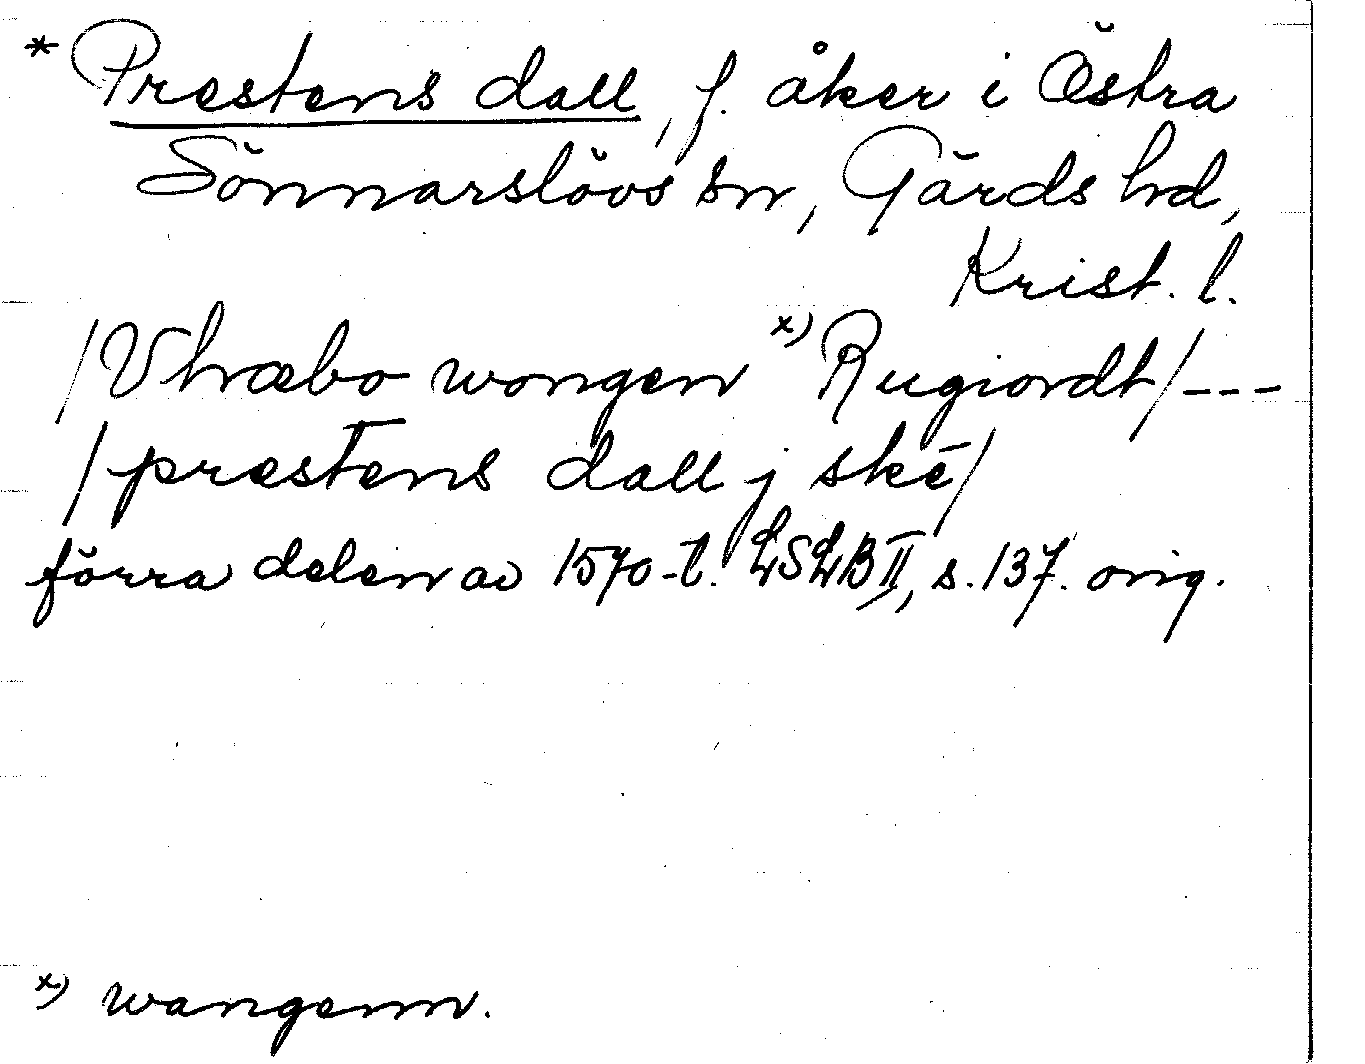 * Prestens dall, f. åker i Östra
Sönnarslövs sn, Gärds hd,
Krist. l.
/Vhræbo wongen x) Rugiordt/---
/prestens dall j skē/
förra delen av 1570-t. LSLB II, s. 137. orig.
x) wangenn.